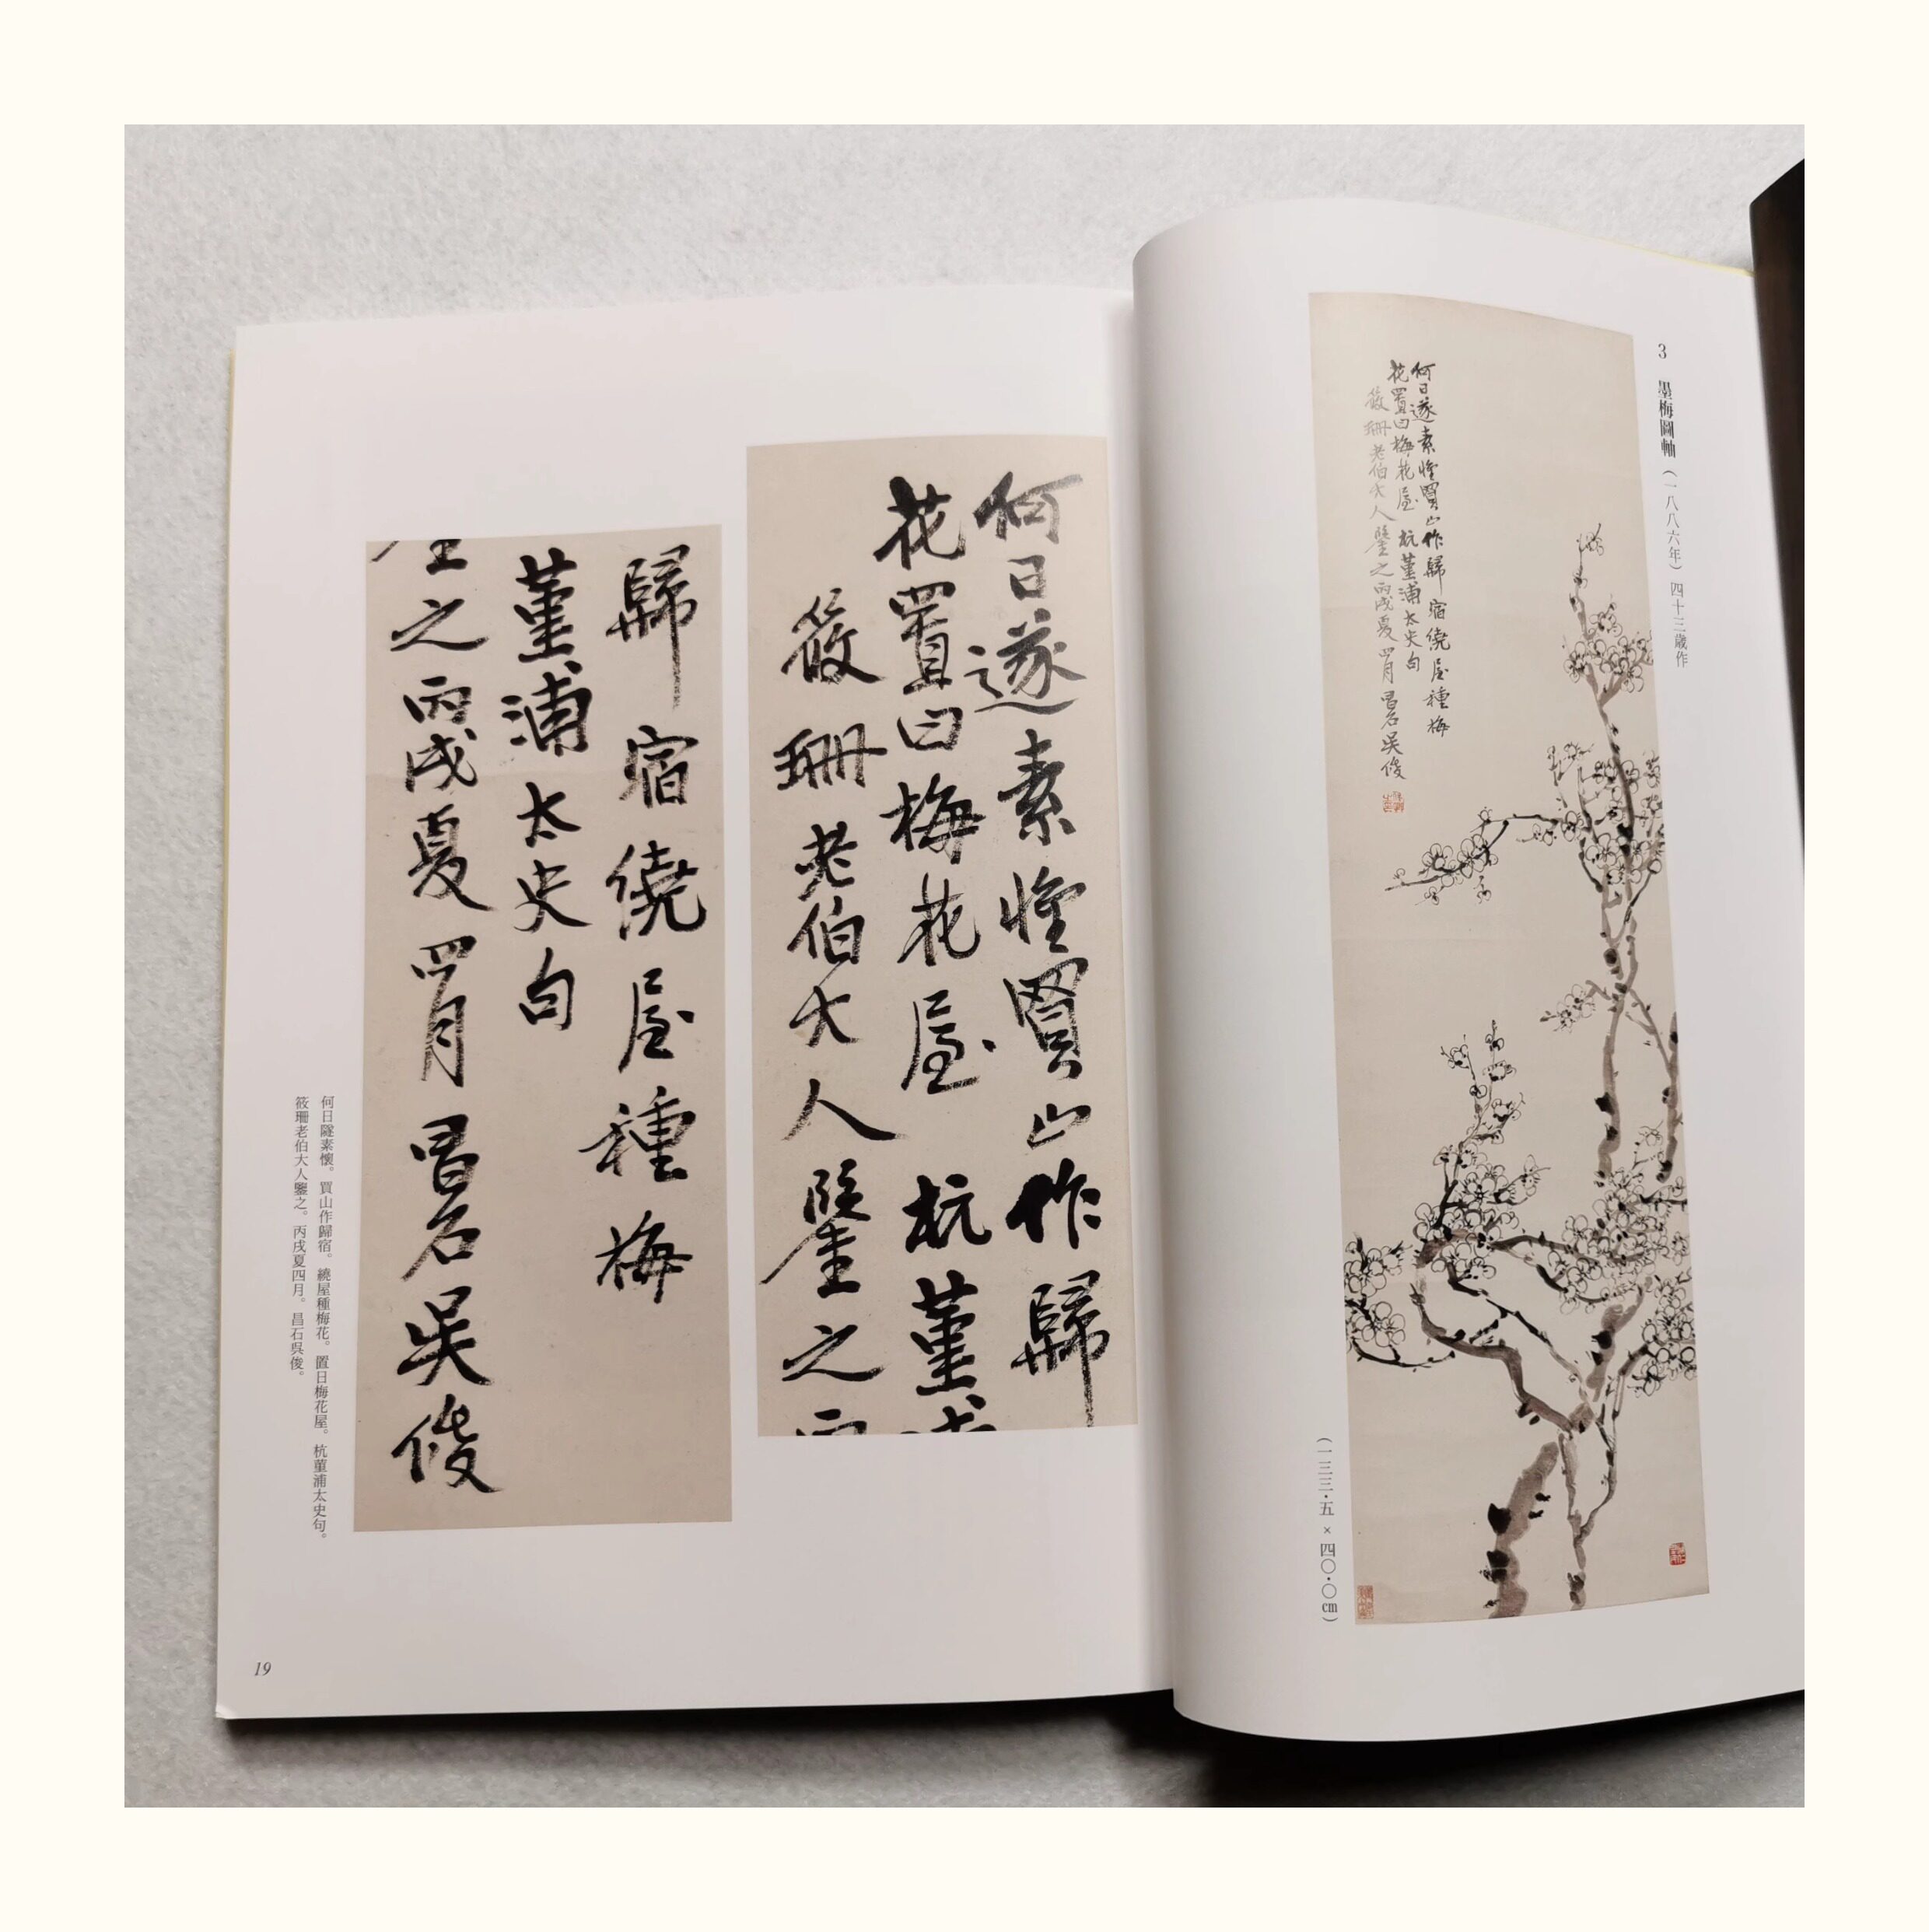 3 墨梅圖軸(一八八六年)四十三歳作
何日遂素懷買山作歸宿繞屋種梅
花置曰梅花屋 杭菫浦太史句
筱珊老伯大人鑒之丙戌夏四月昌石吳俊
(一三三・五×四〇・〇㎝)
何日遂素懷買山作歸
花置曰梅花屋 杭菫
筱珊老伯大人鑒之
歸宿繞屋種梅
菫浦太史句
之丙戌夏四月昌石吳俊
何日隧素懷。買山作歸宿。繞屋種梅花。置日梅花屋。杭菫浦太史句。
筱珊老伯大人鑒之。丙戌夏四月。昌石呉俊。
19